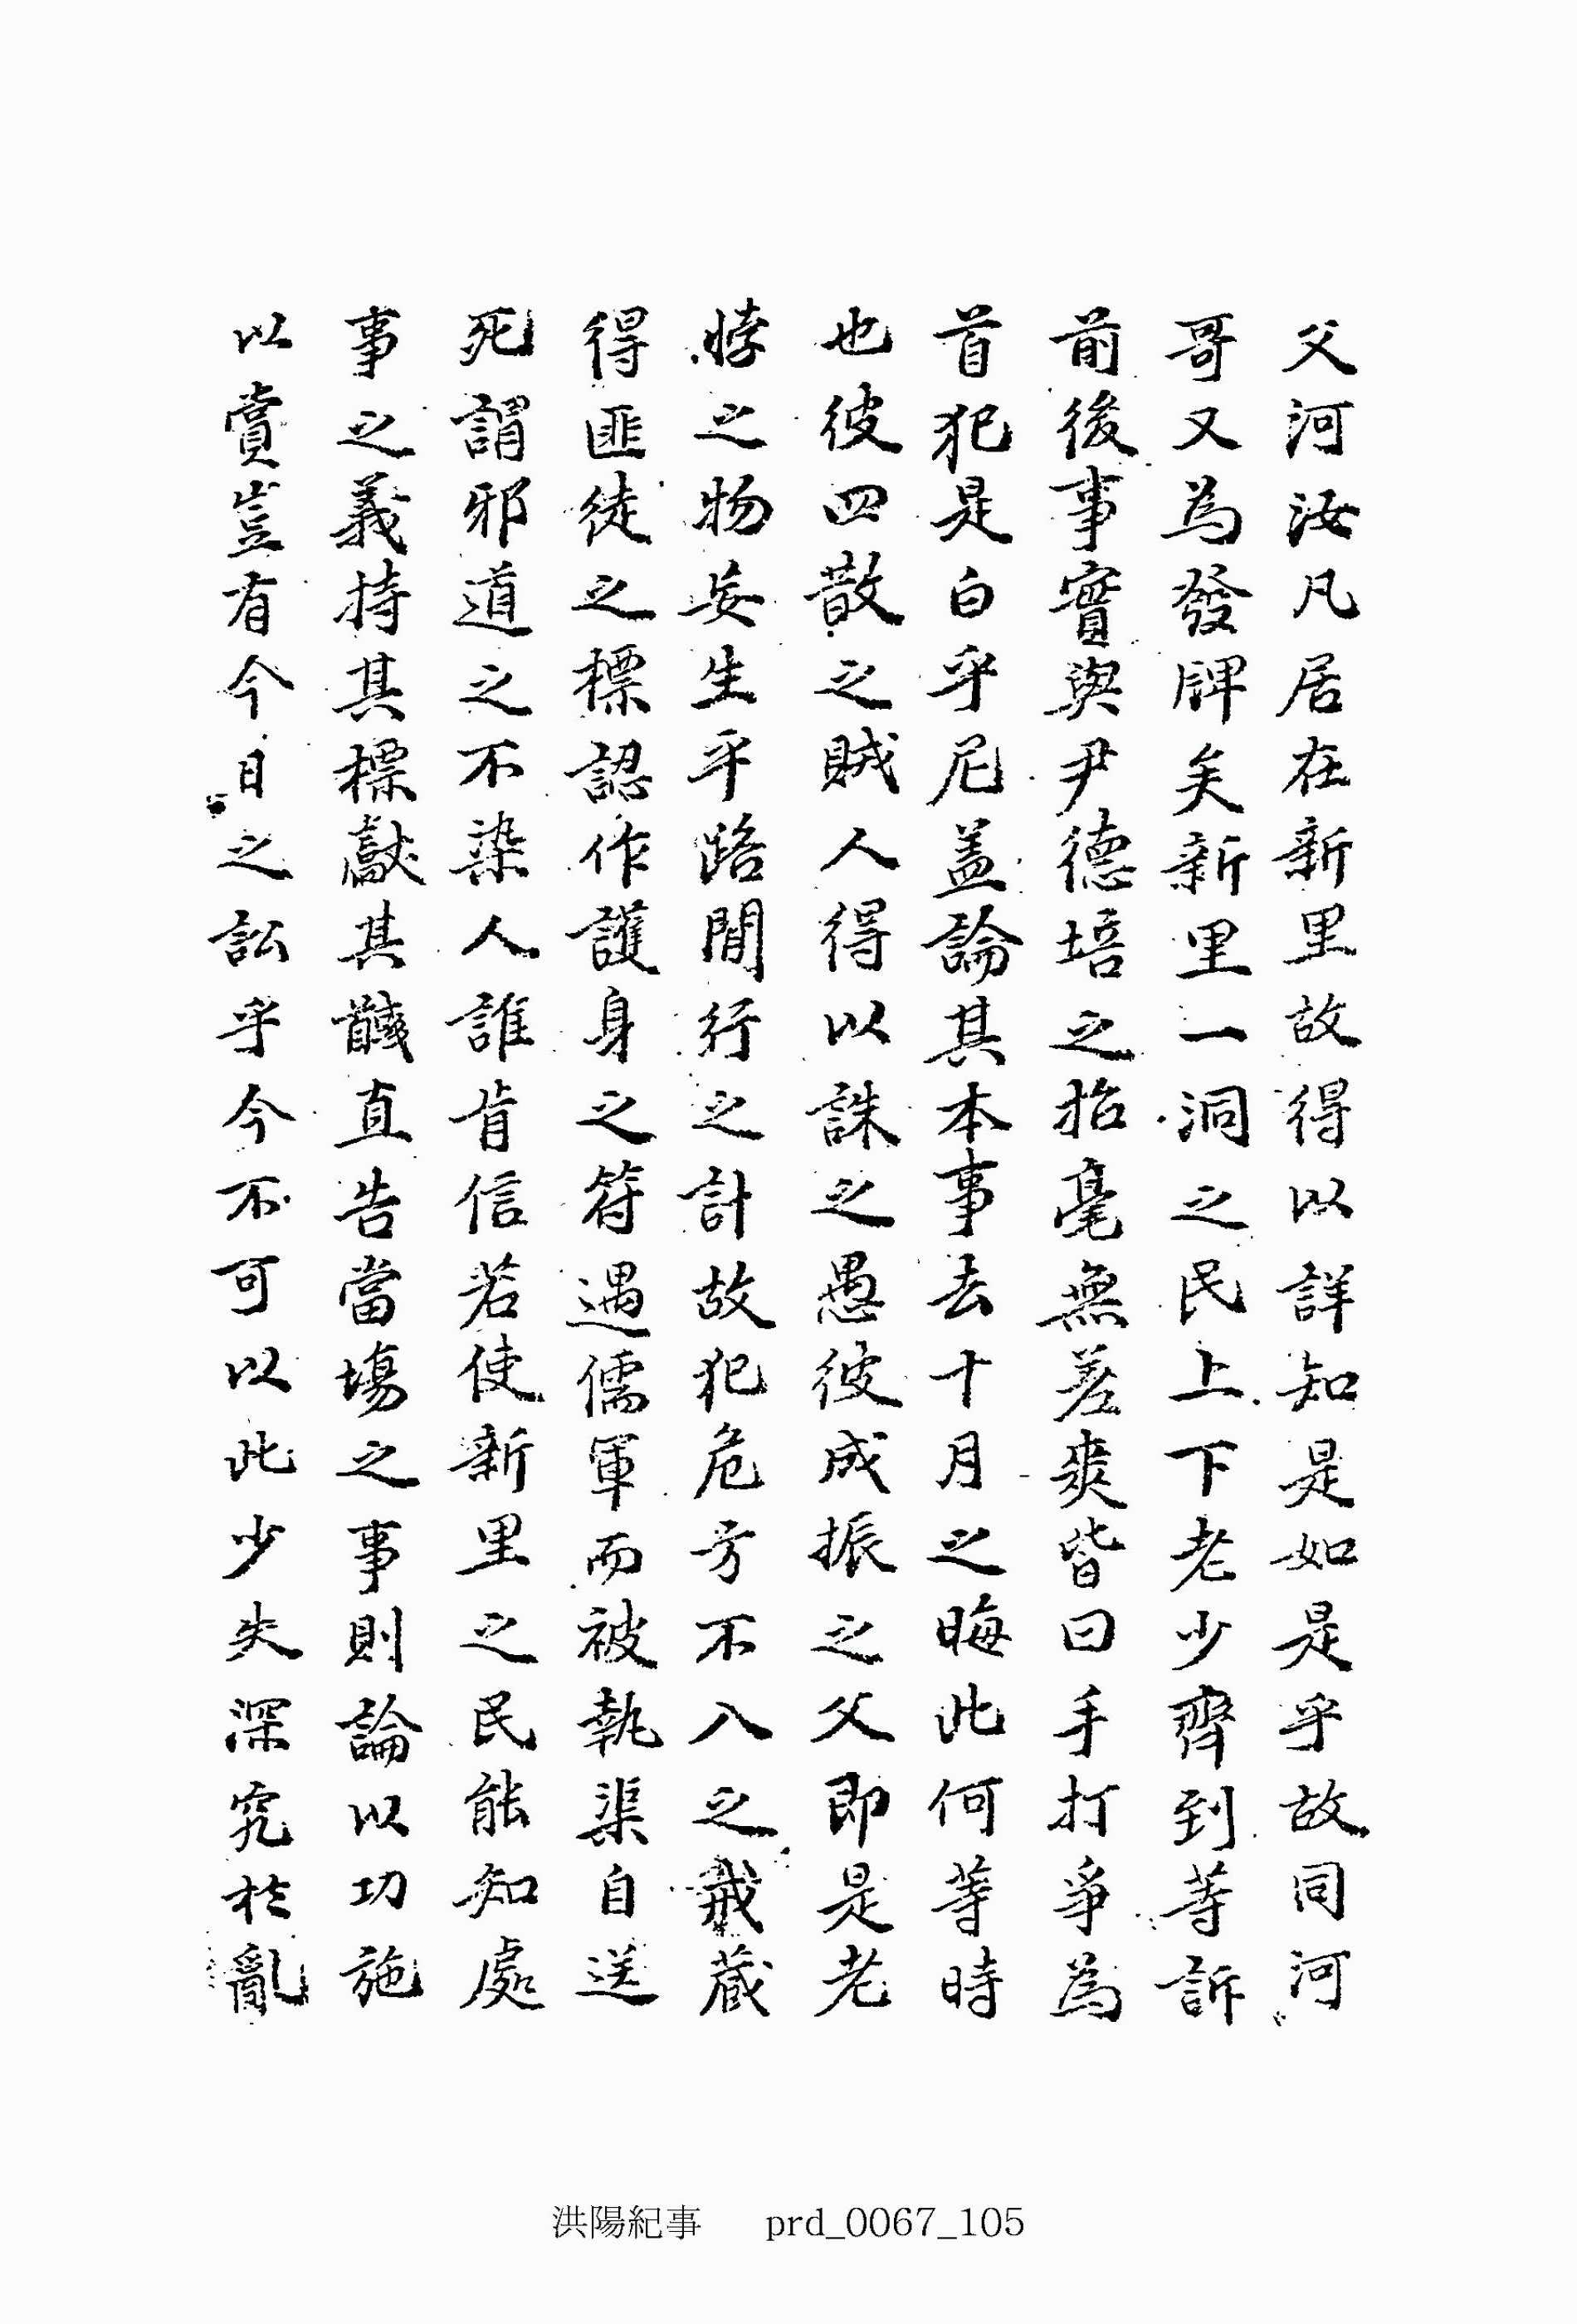 父河汝凡居在新里故得以詳知是如是乎故同河
哥又為發牌矣新里一洞之民上下老少齊到等訴
前後事實與尹德培之招毫無差爽皆曰手打爭為
首犯是白乎尼盖論其本事去十月之晦此何等時
也彼四散之賊人得以誅之愚彼成振之父即是老
悖之物妄生平路間行之計故犯危方不入之戒蔵
得匪徒之標認作護身之符遇儒軍而被執渠自送
死謂邪道之不染人誰肯信若使新里之民能知處
事之義持其標獻其馘直告當場之事則論以功施
以賞豈有今日之訟乎今不可以此少失深究於亂
洪陽紀事 prd_0067_105